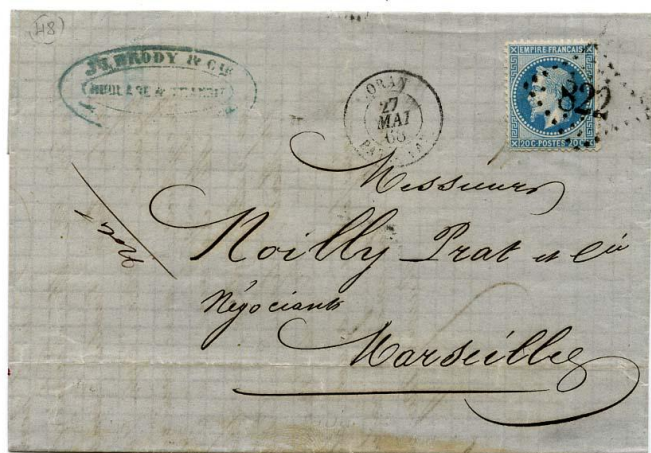 48
Jh. BRODY & CIE
ORAN
27
MAI
EMPIRE FRANÇAIS
822
20 C POSTES 20 C
Messieurs
Noilly Prat et Cie
Négociants
Marseille